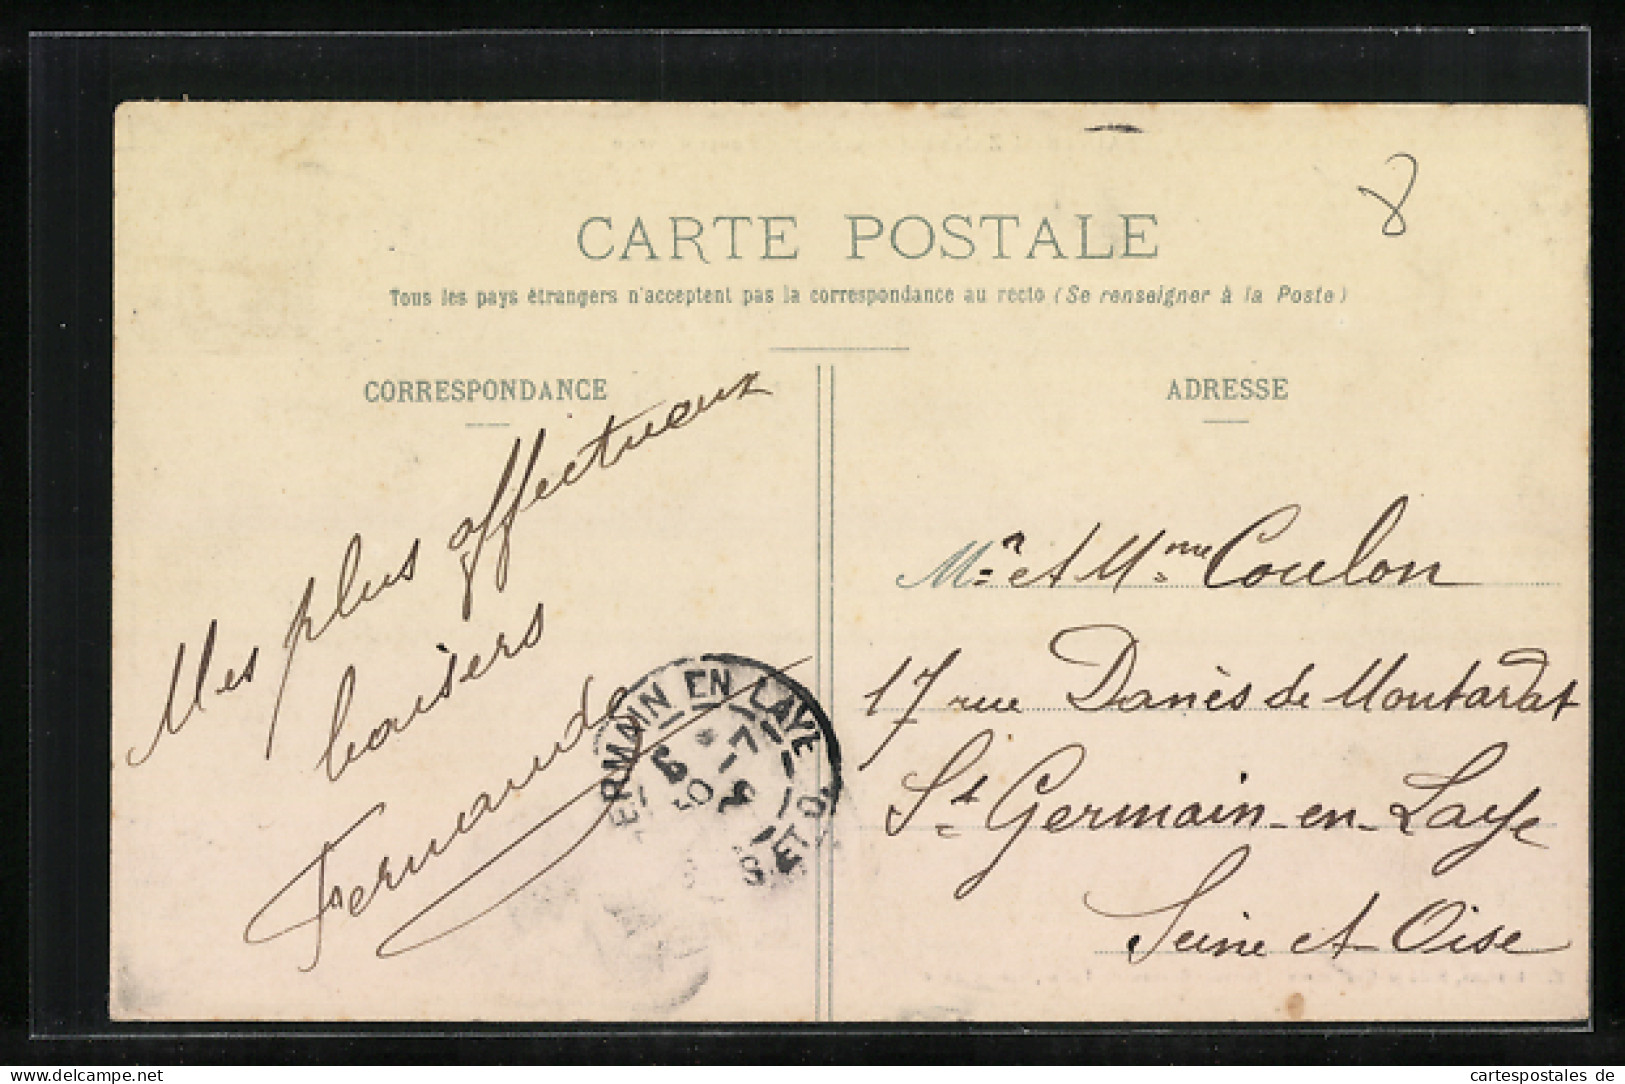 8
CARTE POSTALE
Tous les pays étrangers n'acceptent pas la correspondance au recto (Se renseigner à la Poste)
CORRESPONDANCE
Mes plus affectueux
baisers
Fernande
ERMAIN EN LAYE
ET O
ADRESSE
Mr et Mme Coulon
17 rue Danès de Montardat
St Germain-en-Laye
Seine et Oise
www.delcampe.net
cartespostales de